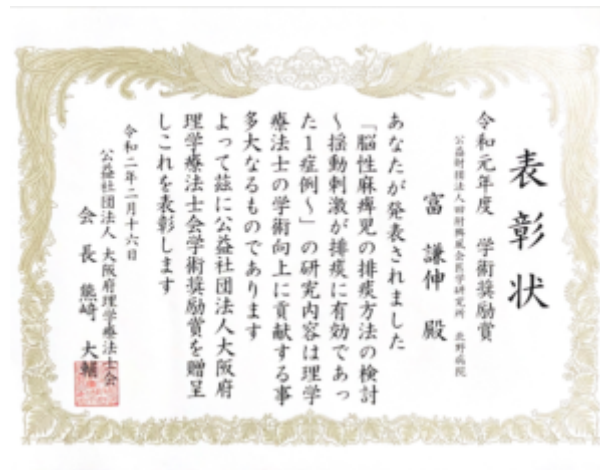 表彰状
令和元年度　学術奨励賞
公益財団法人田附興風会医学研究所　北野病院
富　謙伸　殿
あなたが発表されました
「脳性麻痺児の排痰方法の検討
～揺動刺激が排痰に有効であっ
た１症例～」の研究内容は理学
療法士の学術向上に貢献する事
多大なるものであります
よって茲に公益社団法人大阪府
理学療法士会学術奨励賞を贈呈
しこれを表彰します
令和二年二月十六日
公益社団法人　大阪府理学療法士会
会　長　熊﨑　大輔